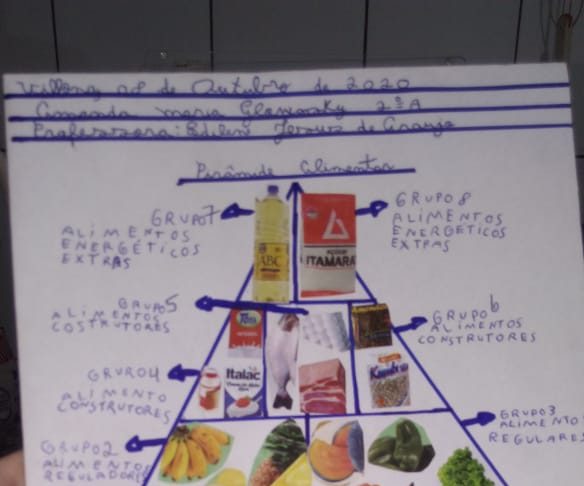 de Outubro de 2020
Amanda maria 2ª A
Professora: Edileni de Araujo
Pirâmide Alimentar
GRUPO7
ALIMENTOS
ENERGÉTICOS
EXTRAS
GRUPO8
ALIMENTOS
ENERGETICOS
EXTRAS
ABC
AÇÚCAR
ITAMARA
GRUPO5
ALIMENTOS
COSTRUTORES
GRUPO6
ALIMENTOS
CONSTRUTORES
GRUPO4
ALIMENTO
CONSTRUTORES
Italac
GRUPO3
ALIMENTO
REGULARES
GRUPO2
ALIMENTOS
REGULADORES